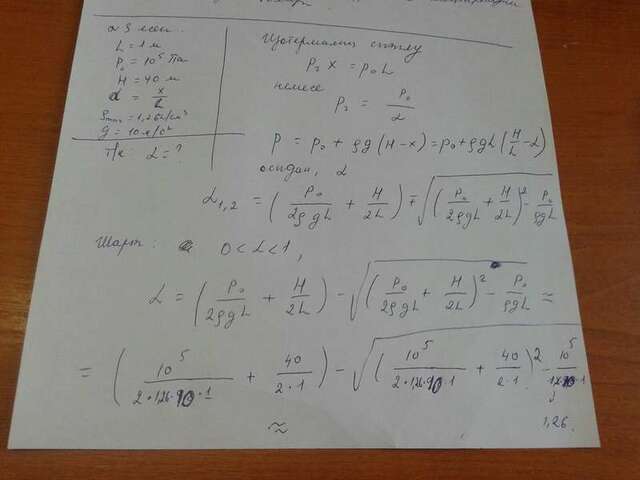 α 3 есеп.
L = 1 м
P₀ = 10⁵ Па
H = 40 м
α = x/L
ρmin = 1,26 г/см³
g = 10 м/с²
Т/к: α = ?
Изотермалық
P₂ x = p₀ L
немесе
P₂ = P₀/α
P = P₀ + ρg (H − x) = p₀ + ρgL (H/L − α)
осыдан, α
α₁,₂ = (P₀/2ρgL + H/2L) ∓ √(P₀/2ρgL + H/2L)² − P₀/ρgL
Шарт: 0 < α < 1,
α = (P₀/2ρgL + H/2L) − √(P₀/2ρgL + H/2L)² − P₀/ρgL ≈
= (10⁵/2·1,26·10·1 + 40/2·1) − √(10⁵/2·1,26·10·1 + 40/2·1)² − 10⁵
1,26.
≈